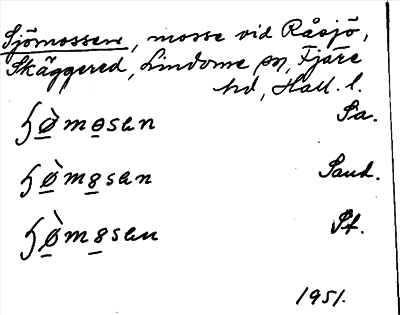 Sjömossen, mosse vid Råsjö,
Skäggered, Lindome sn, Fjäre
hd, Hall. l.
ɧø̀mosan Sa.
ɧø̀m8san Sand.
ɧø̀m8san St.
1951.